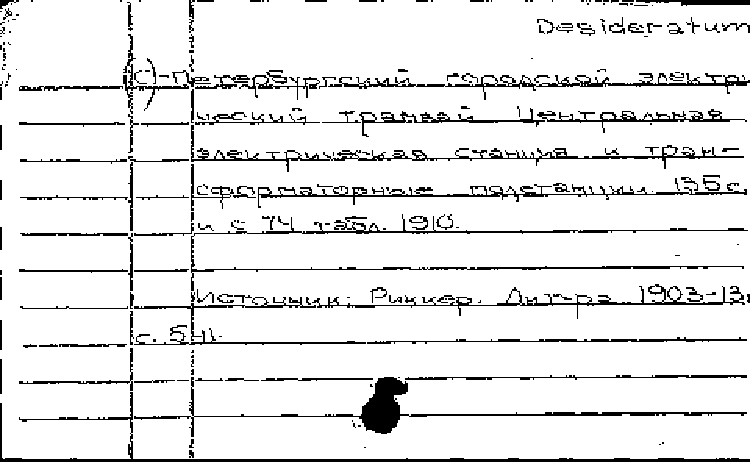 Desideratum
(С)-Петербургский городской электри
ческий трамвай Центральная
электрическая станция и тран-
сформаторные подстанции 135с
и с 74 табл. 1910.
Источник: Риккер. Лит-ра 1903-13
с. 541.